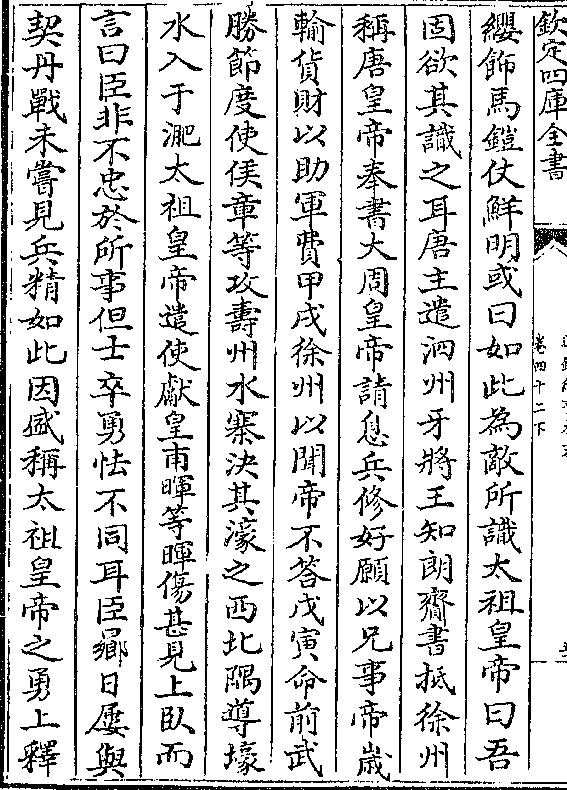 欽定四庫全書
卷四十二下
纓飾馬鎧仗鮮明或曰如此為敵所識太祖皇帝曰吾
固欲其識之耳唐主遣泗州牙將王知朗齎書抵徐州
稱唐皇帝奉書大周皇帝請息兵修好願以兄事帝歲
輸貨財以助軍費甲戌徐州以聞帝不答戊寅命前武
勝節度使侯章等攻壽州水寨決其濠之西北隅導壕
水入于淝太祖皇帝遣使獻皇甫暉等暉傷甚見上臥而
言曰臣非不忠於所事但士卒勇怯不同耳臣曏日屢與
契丹戰未嘗見兵精如此因盛稱太祖皇帝之勇上釋